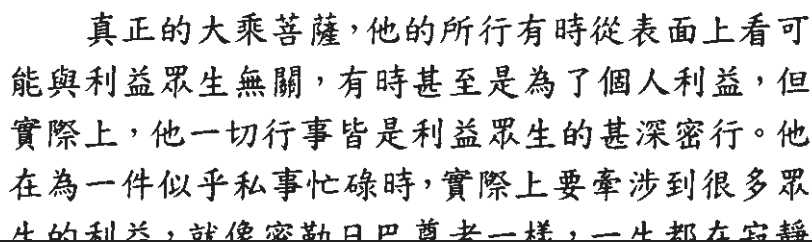 真正的大乘菩薩，他的所行有時從表面上看可
能與利益眾生無關，有時甚至是為了個人利益，但
實際上，他一切行事皆是利益眾生的甚深密行。他
在為一件似乎私事忙碌時，實際上要牽涉到很多眾
生的利益，就像密勒日巴尊者一樣，一生都在寂靜